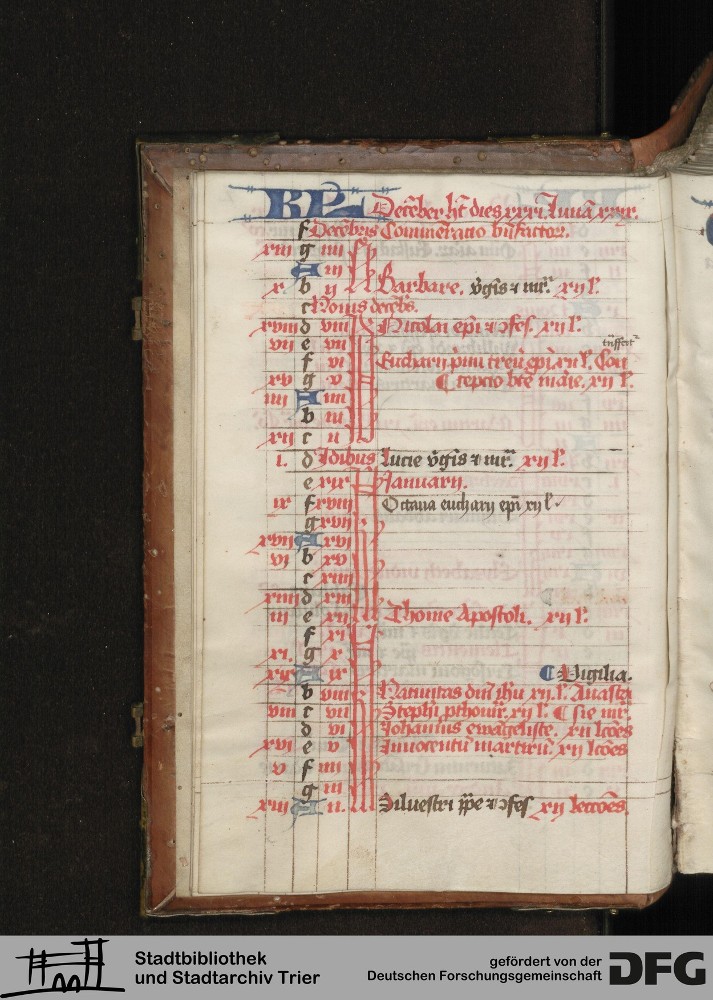 KL Decēber hꝫ dies xxxi. luna xxx.
f Decēbris Commēratio bn̄factor.
xiii g iiii
A iii
x b ii Barbare. v̄gīs ⁊ mr̄. xii l.
c Nonis decēb.
xviii d viii Nicolai ep̄i ⁊ ꝯfes. xii l.
vii e vii
f vi Eucharii p̄mi ep̄i. xii l. Con
xv g v cepcio bte marie. xii l.
iiii A iiii
b iii
xii c ii
i. d Idibus Lucie v̄gīs ⁊ mr̄. xii l.
e xix Januarii.
ix f xviii Octaua eucharii ep̄i xii l.
g xvii
xvii A xvi
vi b xv
c xiiii
xiiii d xiii
iii e xii Thome Apostoli. xii l.
f xi
xi. g x
xix A ix Vigilia.
b viii Natiuitas dn̄i ihu xii l. Anasta
viii c vii Stephi pthomr̄. xii l. sie mr̄.
d vi Johannis ewāgeliste. xii lcōes
xvi e v Innocentū martirū xii lcōes
v f iiii
g iii
xiii A ii. Siluestri pp̄e ⁊ ꝯfes xii lectōes.
Stadtbibliothek
und Stadtarchiv Trier
gefördert von der
Deutschen Forschungsgemeinschaft
DFG